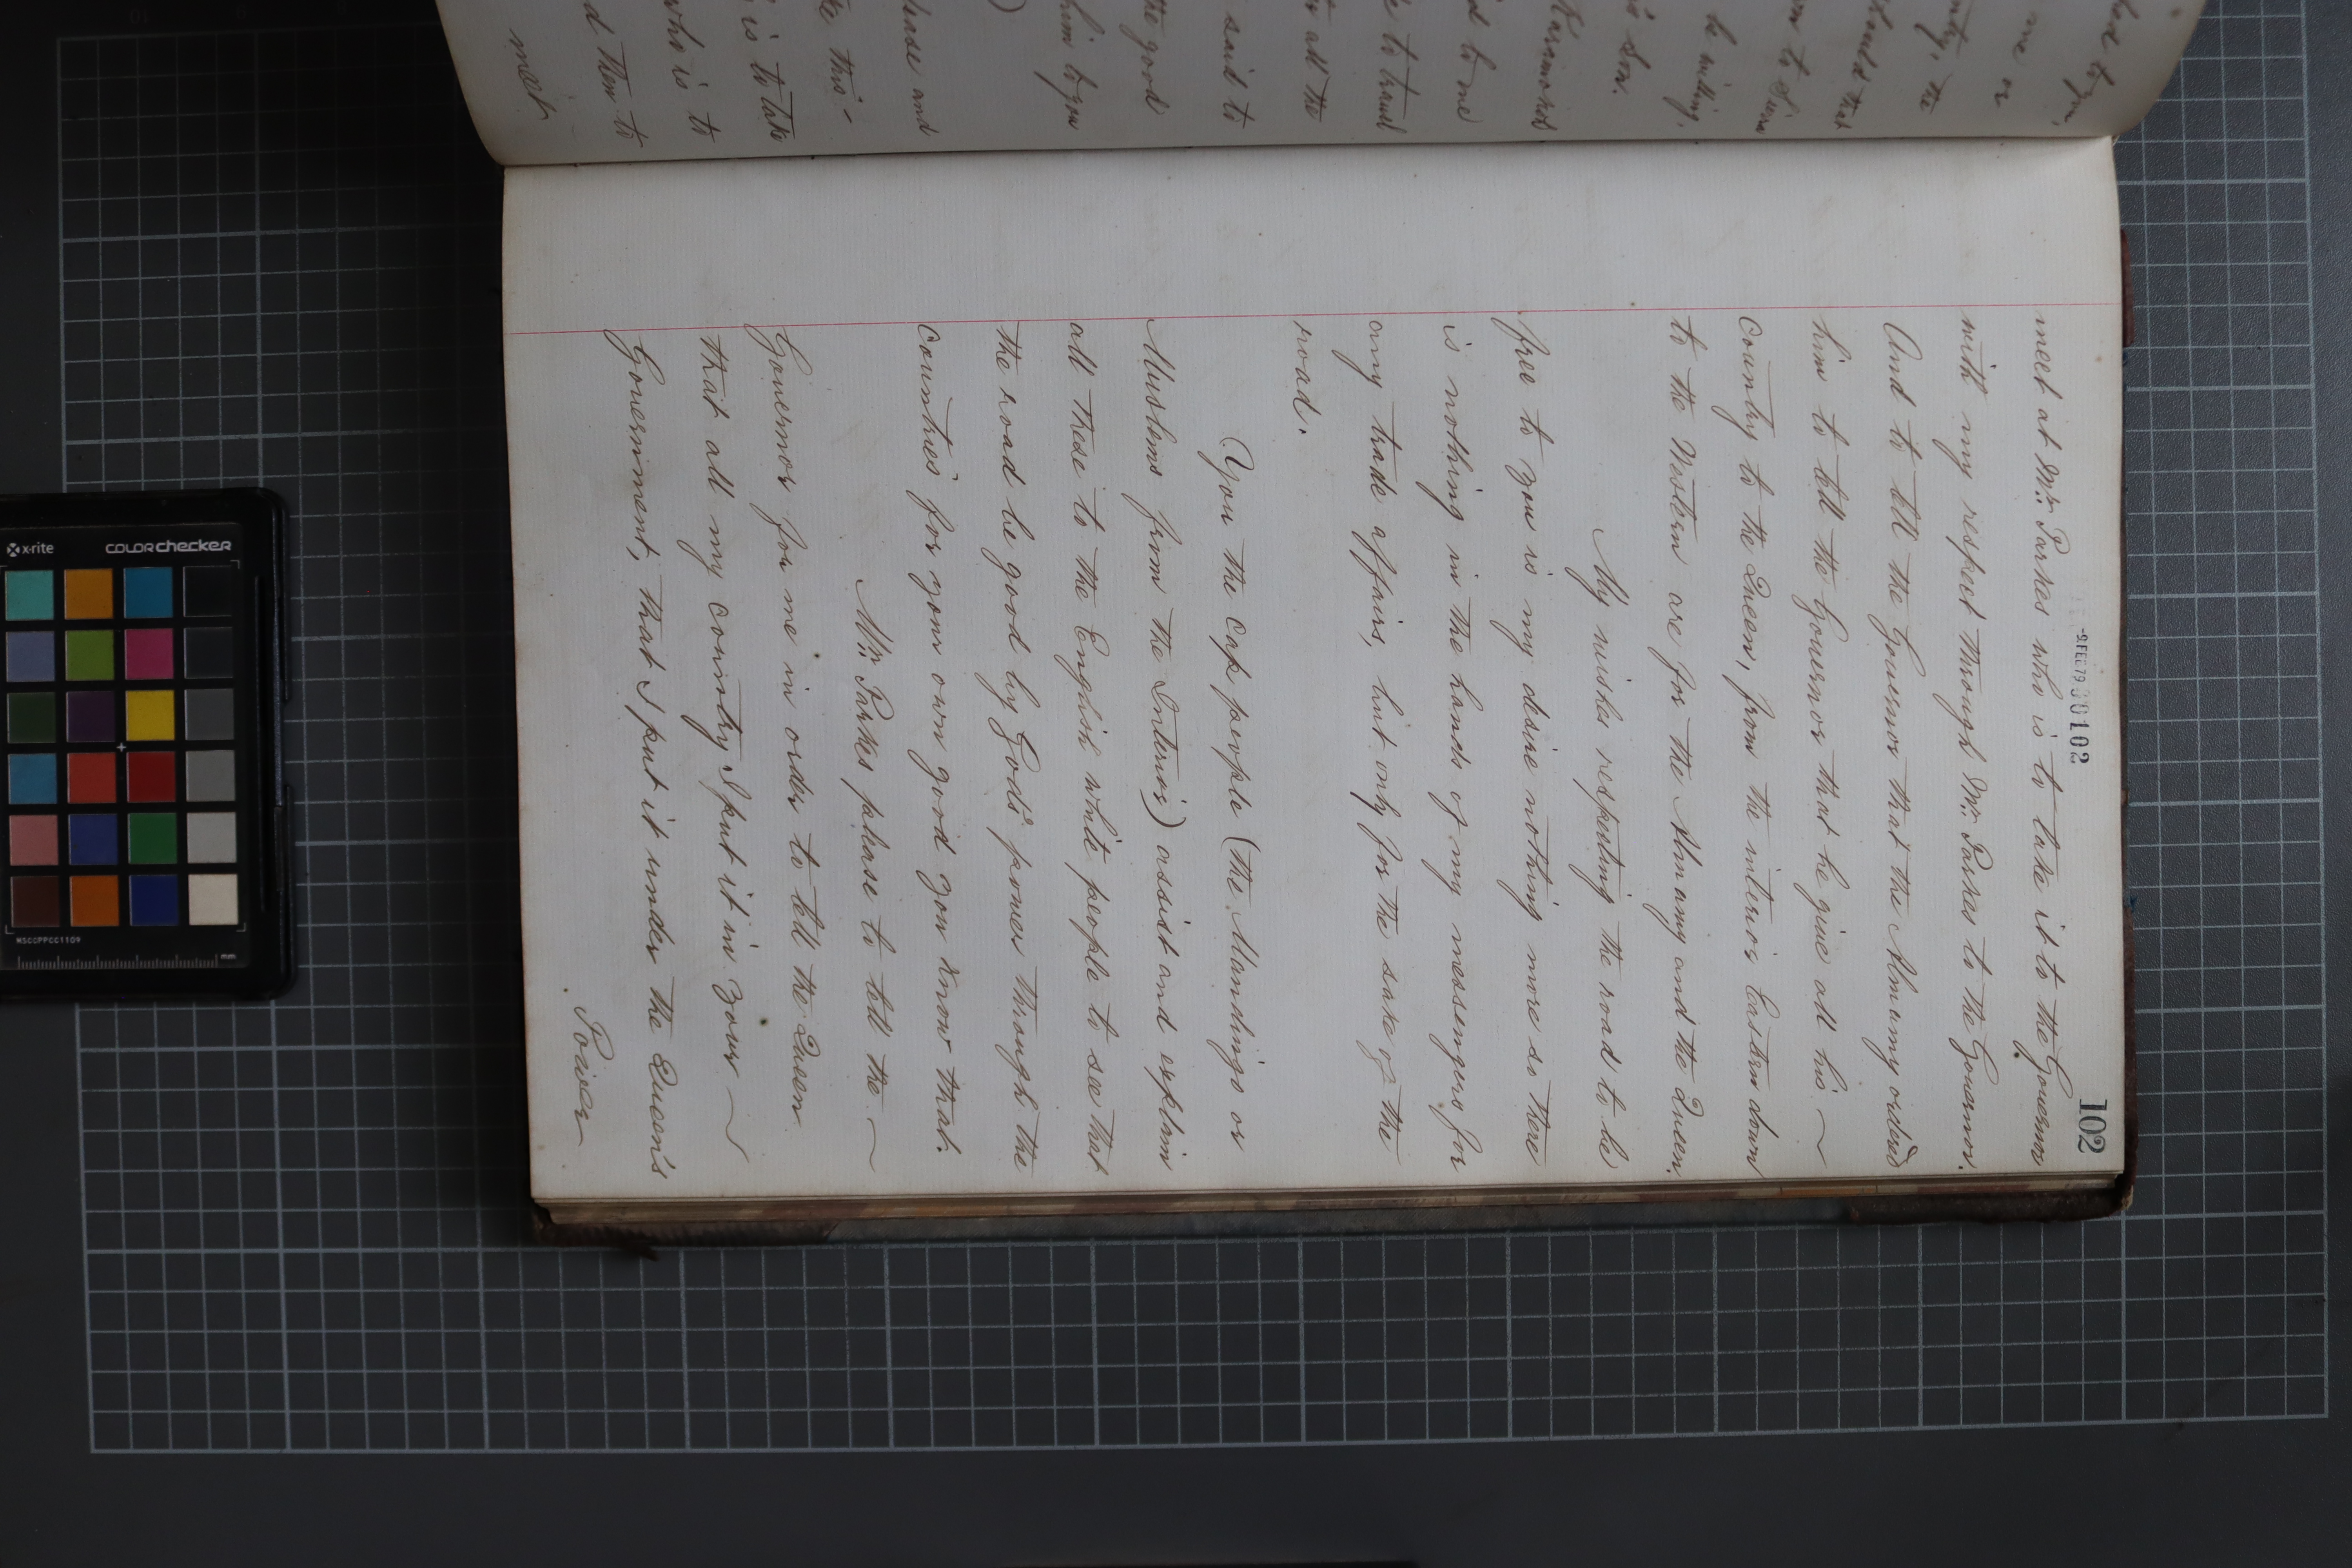 102
-9.FEB.79 000102
meet at Mr. Parkes who is to take it to the Governor
with my respect through Mr. Parkes to the Governor.
And to tell the Governor that the Almamy ordered
him to tell the Governor that he give all his ~
Country to the Queen, from the interior Eastern down
to the Western are for the Almamy and the Queen.
My wishes respecting the road to be
free to you is my desire nothing more so there
is nothing in the hands of my messengers for
any trade affairs, but only for the sake of the
road.
You the cap people (the Mandingo or
Muslems from the Interior) assist and explain
all these to the English white people to see that
the road be good by God's power through the
Countries for your own good you know that.
Mr. Parkes please to tell the ~
Governor for me in order to tell the Queen
that all my country I put it in your ~
Government, that I put it under the Queen's
Power
one or
the
should that
be willing,
is son.
to me
to travel
all the
said to
the good
him to you
)
please and
this -
is to take
who is to
d them to
meet
x-rite
colorchecker
MSCCPPCC1109
mm